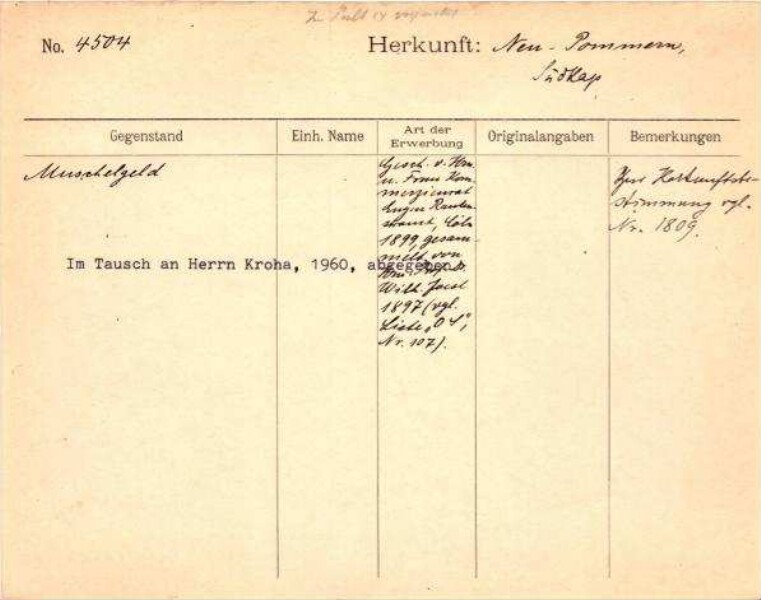 No. 4504
Herkunft: Neu-Pommern,
Südkap
Gegenstand
Einh. Name
Art der
Erwerbung
Originalangaben
Bemerkungen
Muschelgeld
Gesch. v. Hrn.
u. Frau Kom-
merzienrat
Eugen Rauten-
strauch, Cöln
1899, gesam-
melt von
Hrn. Prof. Dr.
Wilh. Joest
1897 (vgl.
Liste
Nr. 107).
Zur Herkunftsbe-
stimmung vgl.
Nr. 1809.
Im Tausch an Herrn Kroha, 1960, abgegeben.